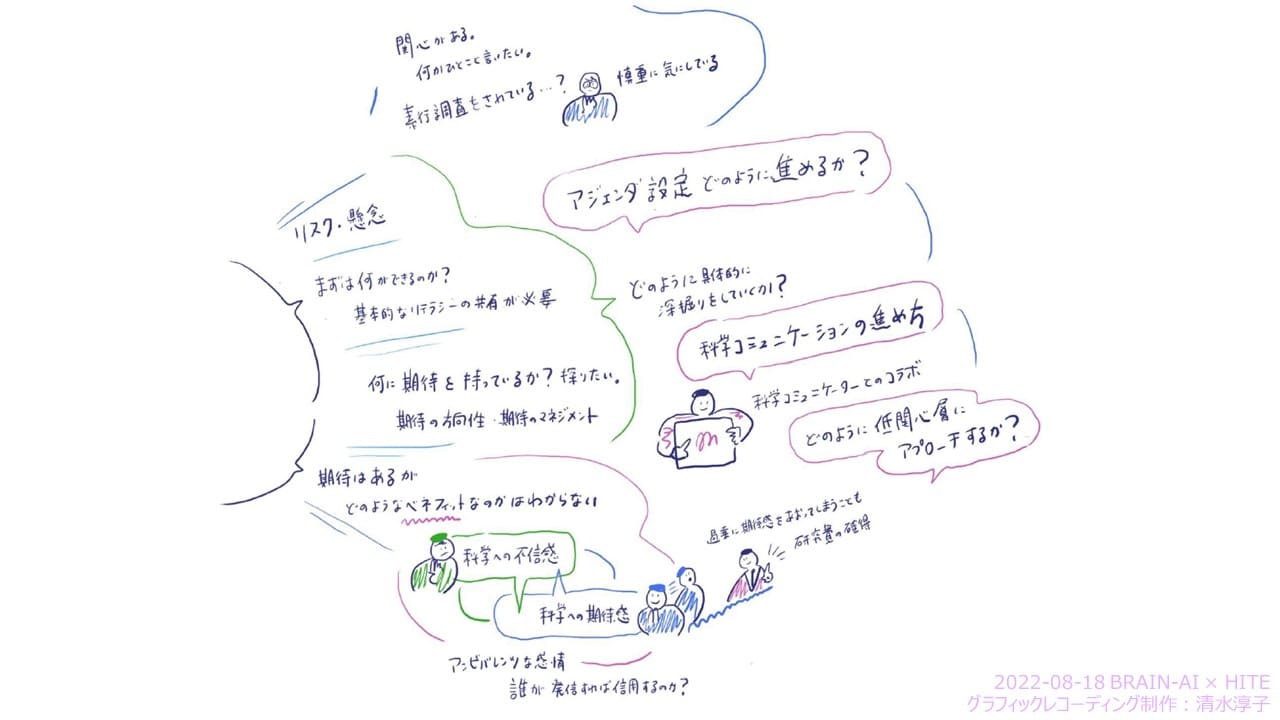 関心がある。
何かひとこと言いたい。
素行調査をされている…?
慎重に気にしている
アジェンダ設定 どのように進めるか?
リスク・懸念
まずは何ができるのか?
基本的なリテラシーの共有が必要
何に期待を持っているか?探りたい。
期待の方向性・期待のマネジメント
期待はあるが
どのようなベネフィットなのかはわからない
科学への不信感
科学への期待感
アンビバレンツな感情
誰が発信すれば信用するのか?
どのように具体的に
深掘りをしていくか?
科学コミュニケーションの進め方
科学コミュニケーターとのコラボ
どのように低関心層に
アプローチするか?
過重に期待感をあおってしまうことも
研究費の獲得
2022-08-18 BRAIN-AI × HITE
グラフィックレコーディング制作：清水淳子